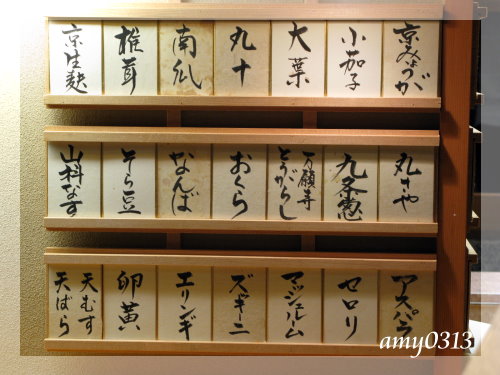 京みょうが
小茄子
大葉
丸十
南瓜
椎茸
京生麩
丸さや
九条葱
万願寺
とうがらし
おくら
なんば
そら豆
山科なす
アスパラ
セロリ
マッシュルーム
ズッキーニ
エリンギ
卵黄
天むす
天ばら
amy0313